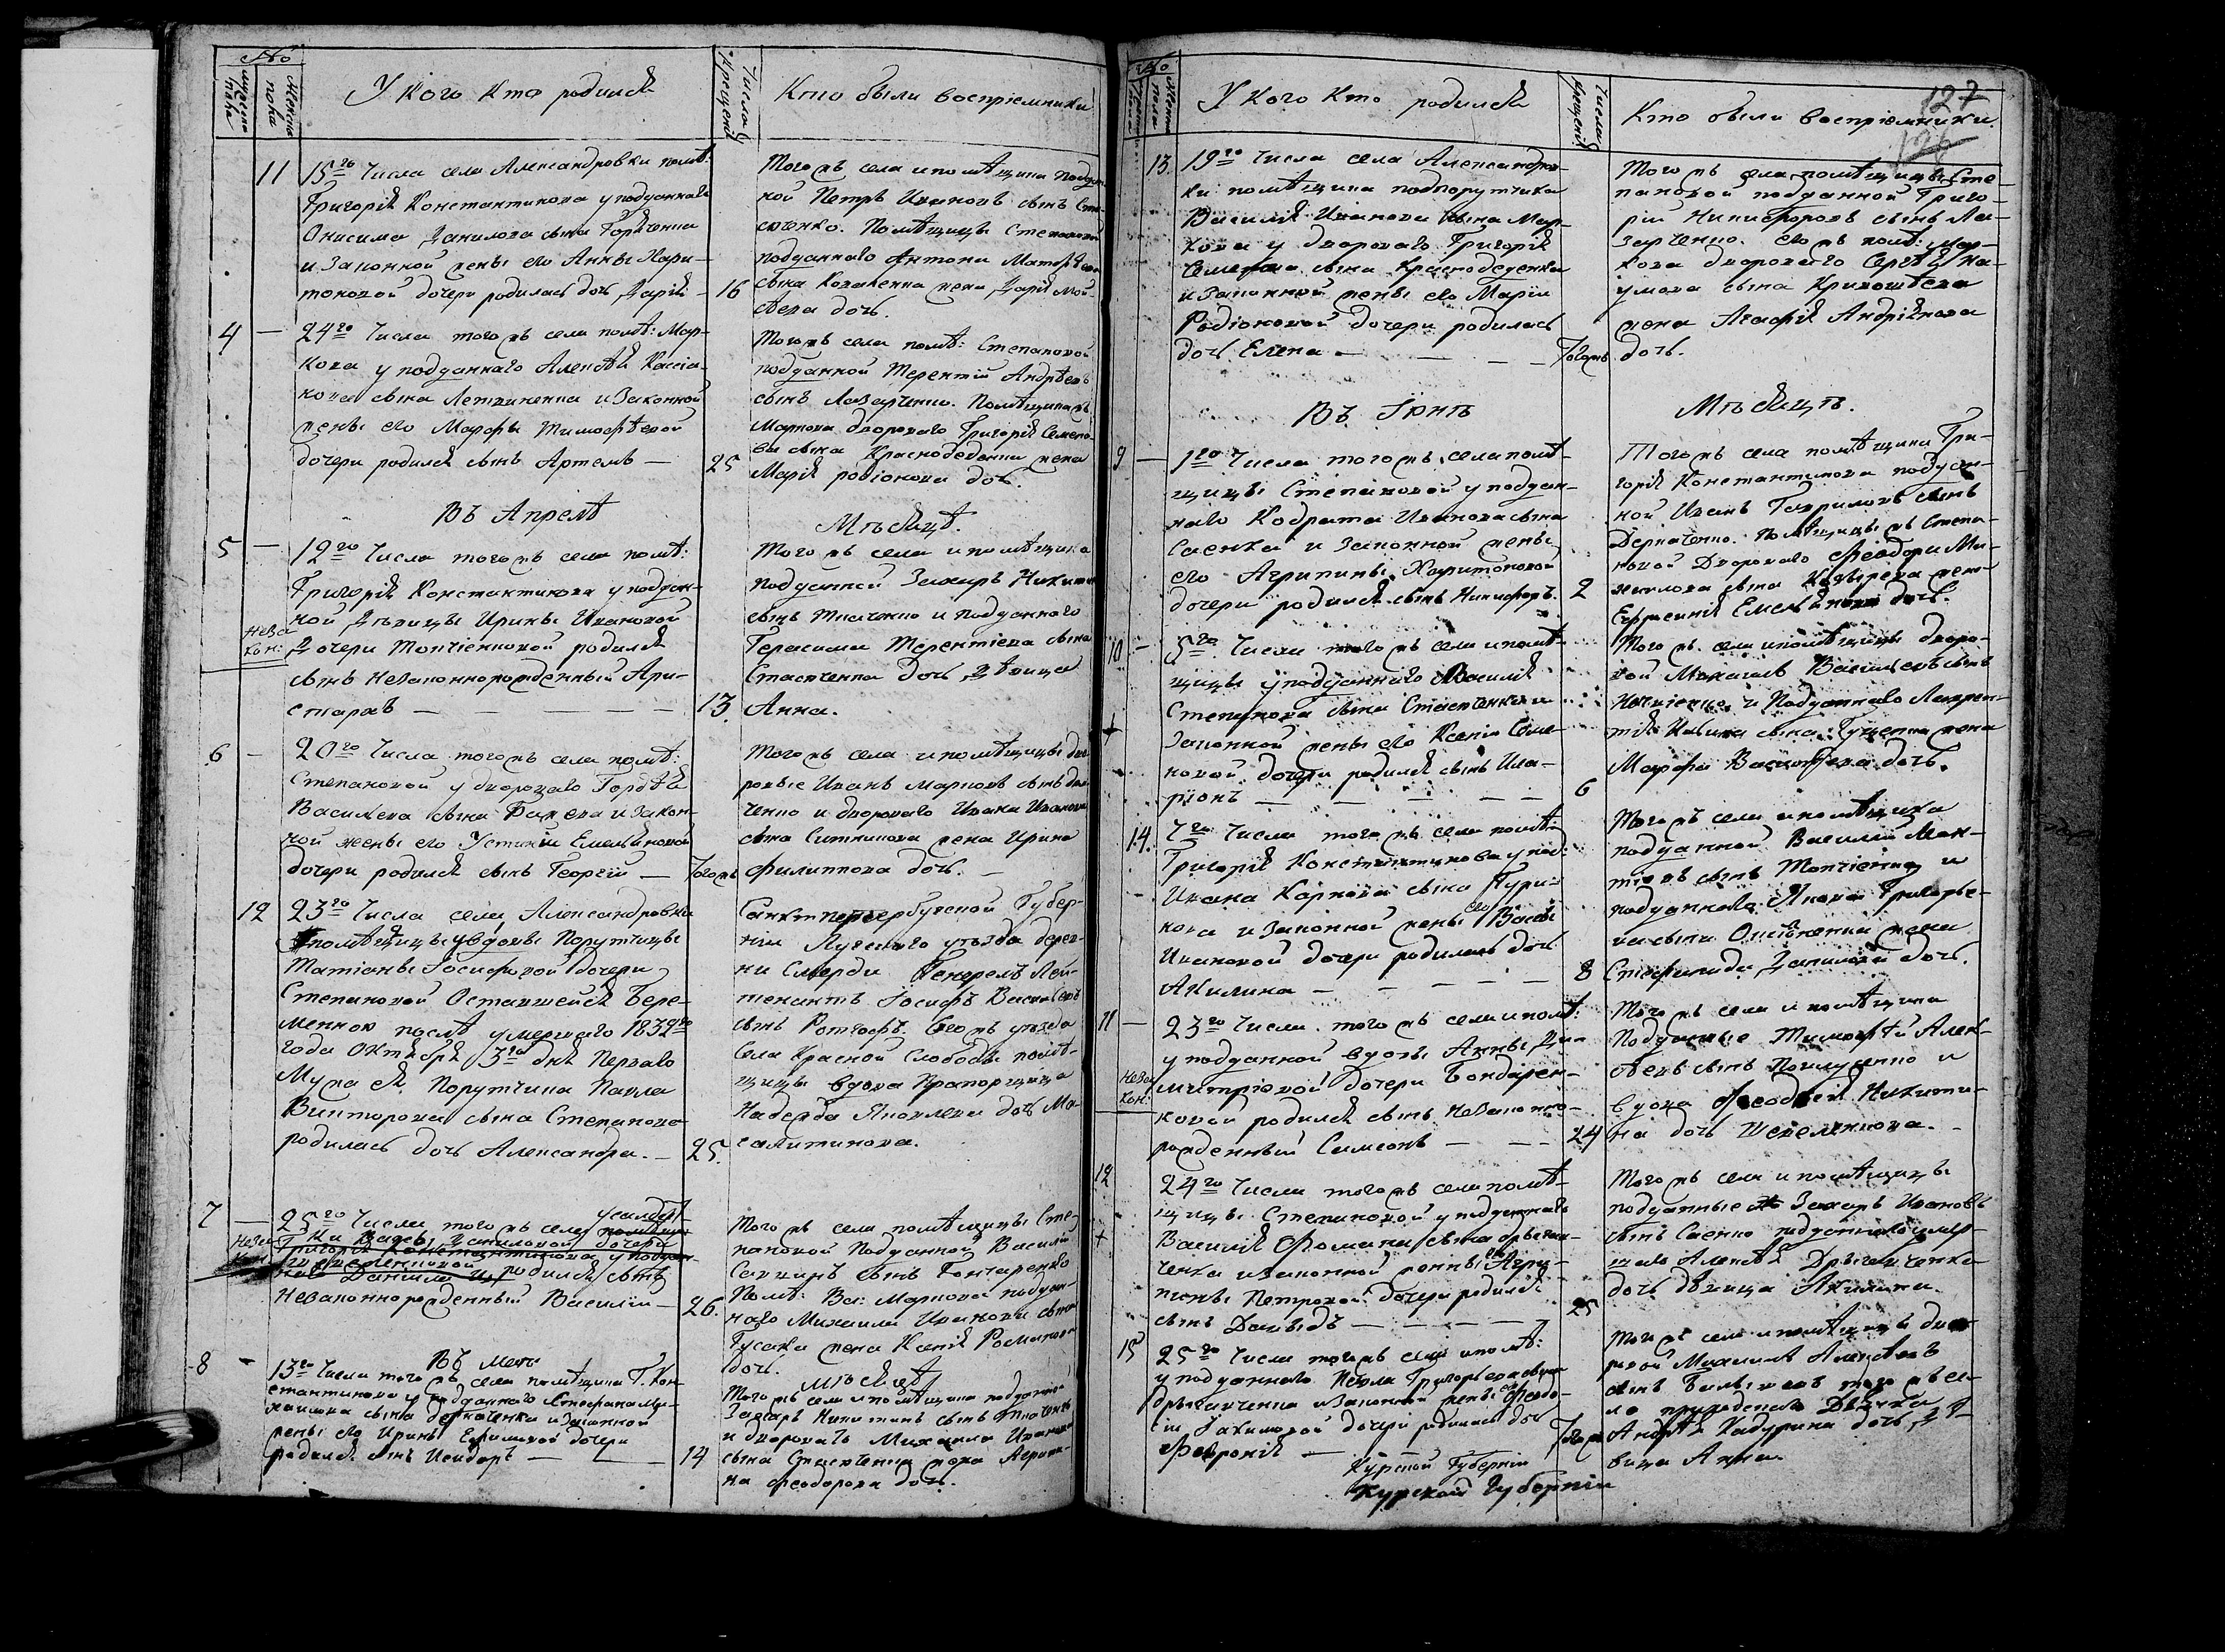 №
мужеска пола
женска пола
У кого кто родился
Числа крещенія
Кто были воспріемники
11
15го Числа села Александровки помѣ:
Григорія Константинова у подданаго
Онисима Данилова сына Горяченка
и Законной жены его Анны Хари-
тоновой дочери родилась дочь Дарія —
16
Тогожъ села и помѣщика поддан-
ной Петръ Ивановъ сынъ Ста-
сюченко. Помѣщицы Степановой
подданаго Антона
сына Коваленка жена Дарія Мой-
сѣева дочь.
4 —
24го Числа тогожъ села помѣ: Мар-
кова у подданнаго Алексѣя Кассіа-
нова сына Летвиненка и Законной
жены его Марфы Тимофѣевой
дочери родился сынъ Артемъ —
25
Тогожъ села помѣ: Степановой
подданной Терентій Андрѣевъ
сынъ Лазарченко. Помѣщикажъ
Маркова двороваго Григорія Семено-
ва сына Краснодеденка жена
Марія родіонова дочь.
Въ Апрелѣ
Мѣсяцѣ.
5 —
Неза
кон:
12го Числа тогожъ села помѣ:
Григорія Константинова у поддан-
ной Дѣвицы Ирины Ивановой
Дочери Топчіенковой родился
сынъ Незаконнорожденный Ари-
стархъ — — — —
13.
Тогожъ села и помѣщика
подданной Захаръ Никитинъ
сынъ Ткаченко и подданного
Герасима Терентіева сына
Стасюченка дочь дѣвица
Анна.
6 —
20го Числа тогожъ села помѣ:
Степановой у двороваго Гордѣя
Васильева сына и Закон-
ной жены его Устиніи Емельяновой
дочери родился сынъ Георгій —
Тогожъ
Тогожъ села и помѣщицы дво-
ровые Иванъ Марковъ сынъ
ченко и двороваго Ивана Иванова
сына Ситникова жена Ирина
Филиппова дочь. —
12
23го Числа села Александровки
помѣщицы у вдовы Порутчицы
Татіаны Іосифовой дочери
Степановой Оставшейся Бере-
менною послѣ умершаго 1832го
года Октября 3го дня Перваго
Мужа ея Порутчика Павла
Викторова сына Степанова
родилась дочь Александра. —
25.
Санктпетербугской Губер-
ніи Лугскаго уѣзда дерев-
ни Смерди Генералъ Лей-
тенантъ Іосифъ Васильевъ
сынъ Ротгофъ. Тогожъ уѣзда
села Красной Слободы помѣ-
щицы вдова Прапорщица
Надежда Яковлева дочь Мо-
салитинова.
7 —
Неза
кон:
25го Числа тогожъ села
родился сынъ
Незаконнорожденный Василій —
26.
Тогожъ села помѣщицы Сте-
пановой Подданной Василій
Саввинъ сынъ Гончаренко
Помѣ: Ва: Маркова поддан-
наго Михаила Иванова сына
Гусака жена Ксенія Романова
дочь.
Въ Маѣ
Мѣсяцѣ
8 -
13го Числа тогожъ села помѣщика Г. Кон-
стантинова у подданнаго Стефана Ми-
хайлова сына Деркаченка и Законной
жены его Ирины Ефимовой дочери
родился сынъ Исидоръ —
14
Тогожъ села и помѣщика подданной
Захаръ Никитинъ сынъ Ткаченко
и двороваго Михаила Иванова
сына жена Агрипи-
на Феодорова дочь.
№
женска пола
У кого кто родился
Числа крещенія
Кто были воспріемники.
127
126
13.
19го Числа села Александров-
ки помѣщика подпорутчика
Василія Иванова сына Мар-
кова у двороваго Григорія
Семенова сына Краснодеденка
и Законной жены его Маріи
Родіоновой дочери родилась
дочь Елена — — —
Тогожъ
Тогожъ села помѣщицы Сте-
пановой подданной Григо-
рій Никифоровъ сынъ Ла-
зарченко. Тогожъ помѣ: Мар-
кова двороваго Сергѣя На-
умова сына Кривошѣева
жена Агафія Андріянова
дочь.
Въ Іюнѣ
Мѣсяцѣ.
9 —
1го Числа тогожъ села помѣ-
щицы Степановой у поддан-
наго Кодрата Иванова сына
Саенка и Законной жены
его Агрипины Харитоновой
дочери родился сынъ Никифоръ.
2
Тогожъ села помѣщика Гри-
горія Константинова поддан-
ной Иванъ Гавриловъ сынъ
Деркаченко. Помѣщицыжъ Степа-
новой Двороваго Феодора Ми-
хайлова сына жена
Ефросинія Емельянова дочь.
10 -
5го Числа тогожъ села и помѣ-
щицы у подданнаго Василія
Степанова сына Стасюченка и
Законной жены его Ксеніи Семе-
новой дочери родился сынъ Ила-
ріонъ — — — — —
6
Тогожъ села и помѣщицы дворо-
вой Михаилъ Васильевъ сынъ
и Подданнаго Лаврен-
тія сына Гуценка жена
Марфа Васильева дочь.
14.
7го Числа тогожъ села помѣ:
Григорія Константинова у под:
Ивана Карпова сына
кова и Законной жены его Вассы
Ивановой дочери родилась дочь
Акилина — — — — —
8
Тогожъ села и помѣщика
подданной Василій
сынъ Топчіенко и
подданнаго Якова Григорье-
ва сына жена
Стефанида Данилова дочь.
11 —
Неза
кон:
23го Числа тогожъ села и помѣ:
у подданной вдовы Анны Ди-
митріовой дочери Бондарен-
ковой родился сынъ Незаконно-
рожденный Симеонъ — — —
24
Тогожъ села и помѣщика
Подданные Тимофѣй Алек-
сѣевъ сынъ и
вдова Феодосія Никити-
на дочь Шевелихова. —
12
24го Числа тогожъ села помѣ-
щицы Степановой у подданнаго
Василія Фомина сына
ченка и законной жены его Агри-
пины Петровой дочери родился
сынъ Давыдъ — — — —
25
Тогожъ села и помѣщицы
подданные Захаръ Ивановъ
сынъ Саенко подданнаго умер-
шаго Алексѣя
дочь дѣвица Акилина.
15
25го Числа тогожъ села и помѣ:
у подданнаго Павла Григорьева сына
и Законной жены его Феодо-
сіи Іакимовой дочери родилась дочь
Февронія —
Тогожъ
Тогожъ села и помѣщицы дво-
ровой Михаилъ Алексѣевъ
сынъ тогожъ се-
ла
Андрѣя Кадурина дочь дѣ-
вица Анна.
Курской Губерніи
Курской Губерніи